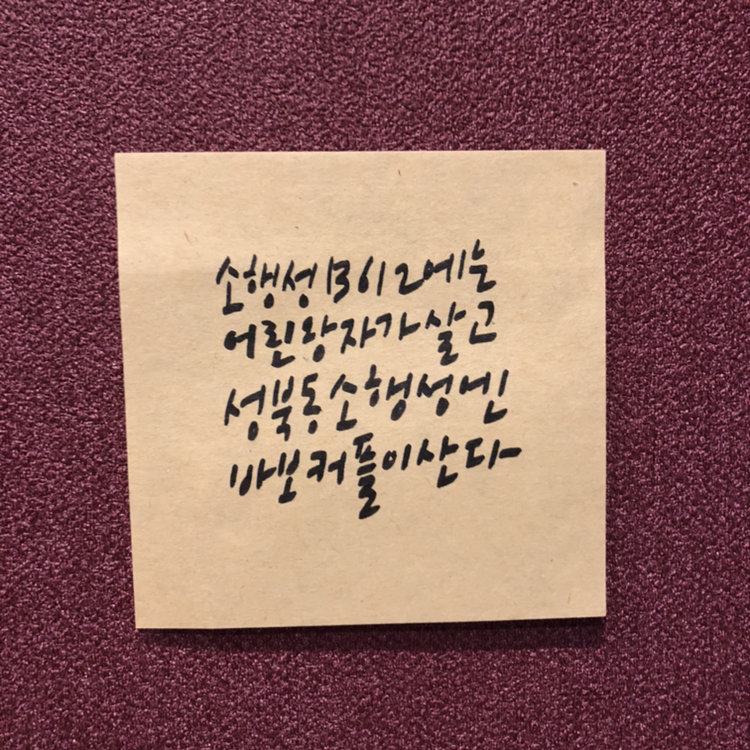 소행성B612에는
어린왕자가살고
성북동소행성엔
바보커플이산다